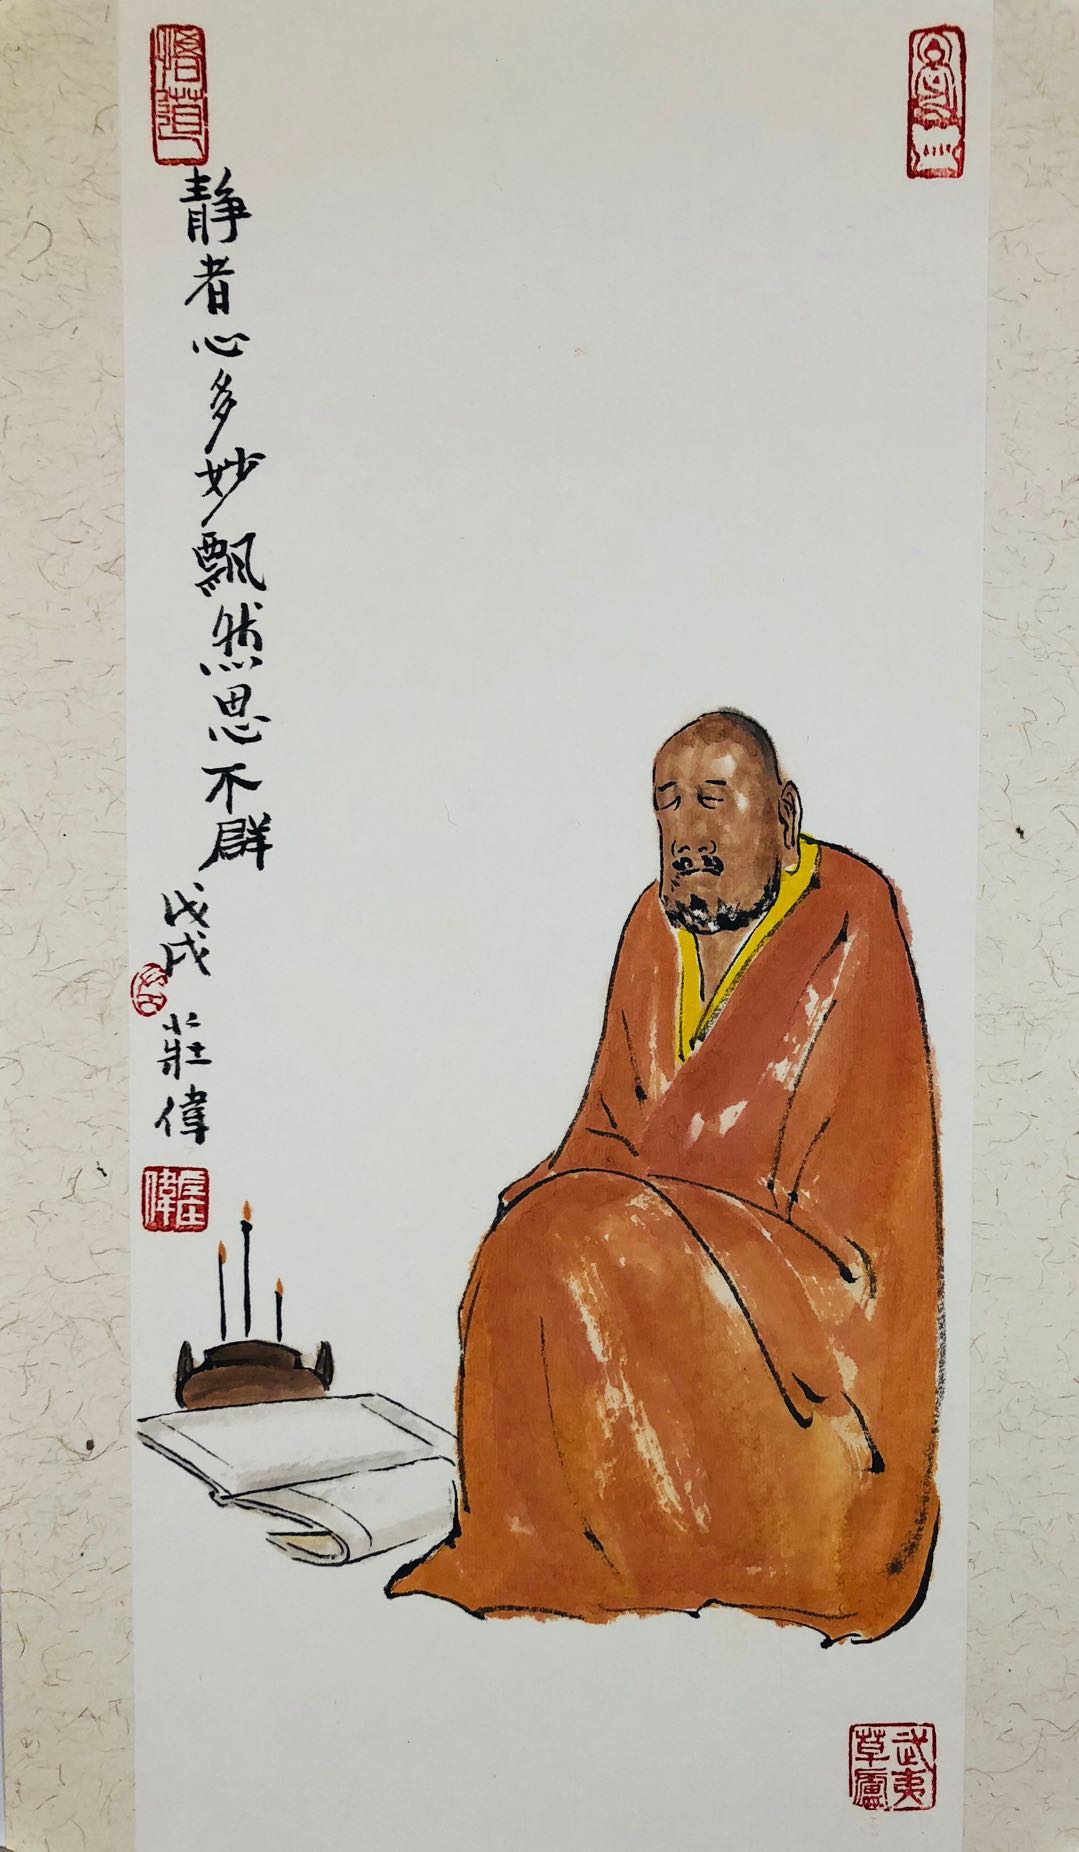 静者心多妙飘然思不群
戊戌
莊偉
悟道
莊偉
武夷草廬